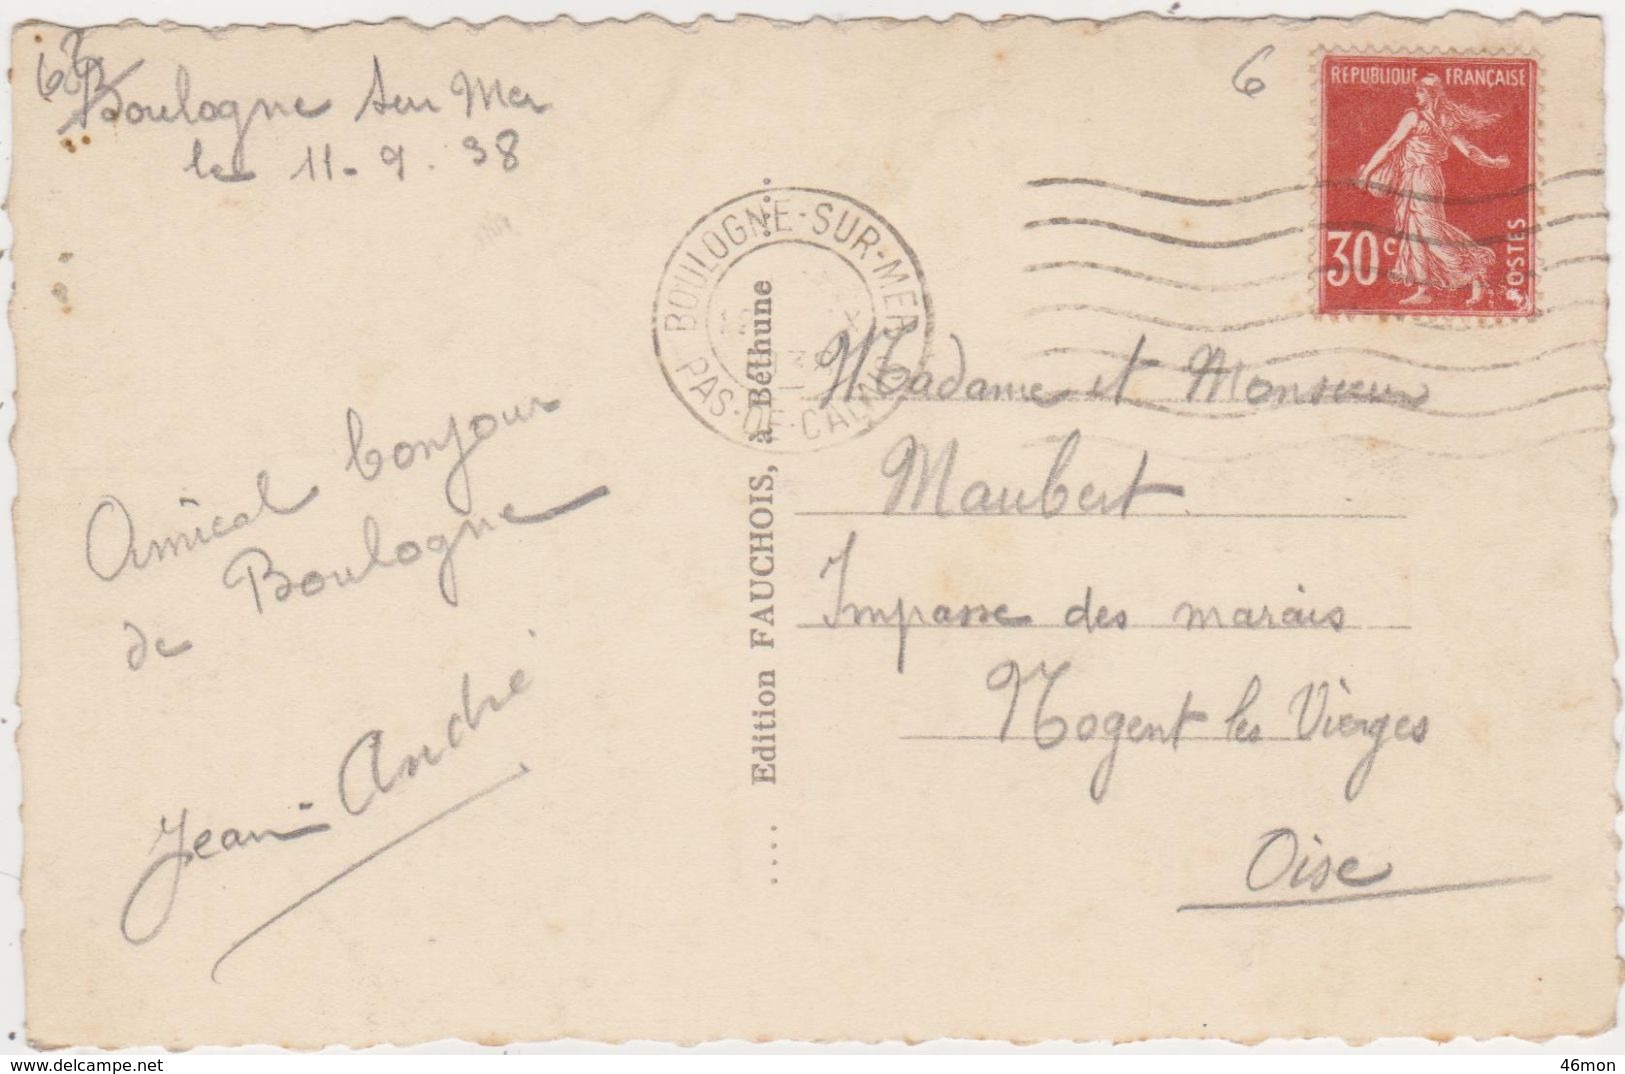 Boulogne sur Mer
le 11-9.38
6
REPUBLIQUE FRANÇAISE
30c
POSTES
BOULOGNE-SUR-MER
PAS-DE-CALAIS
Amical bonjour
de Boulogne
Jean-André
Edition FAUCHOIS, à Béthune
Madame et Monsieur
Maubert
Impasse des marais
Nogent les Vierges
Oise
www.delcampe.net
46mon